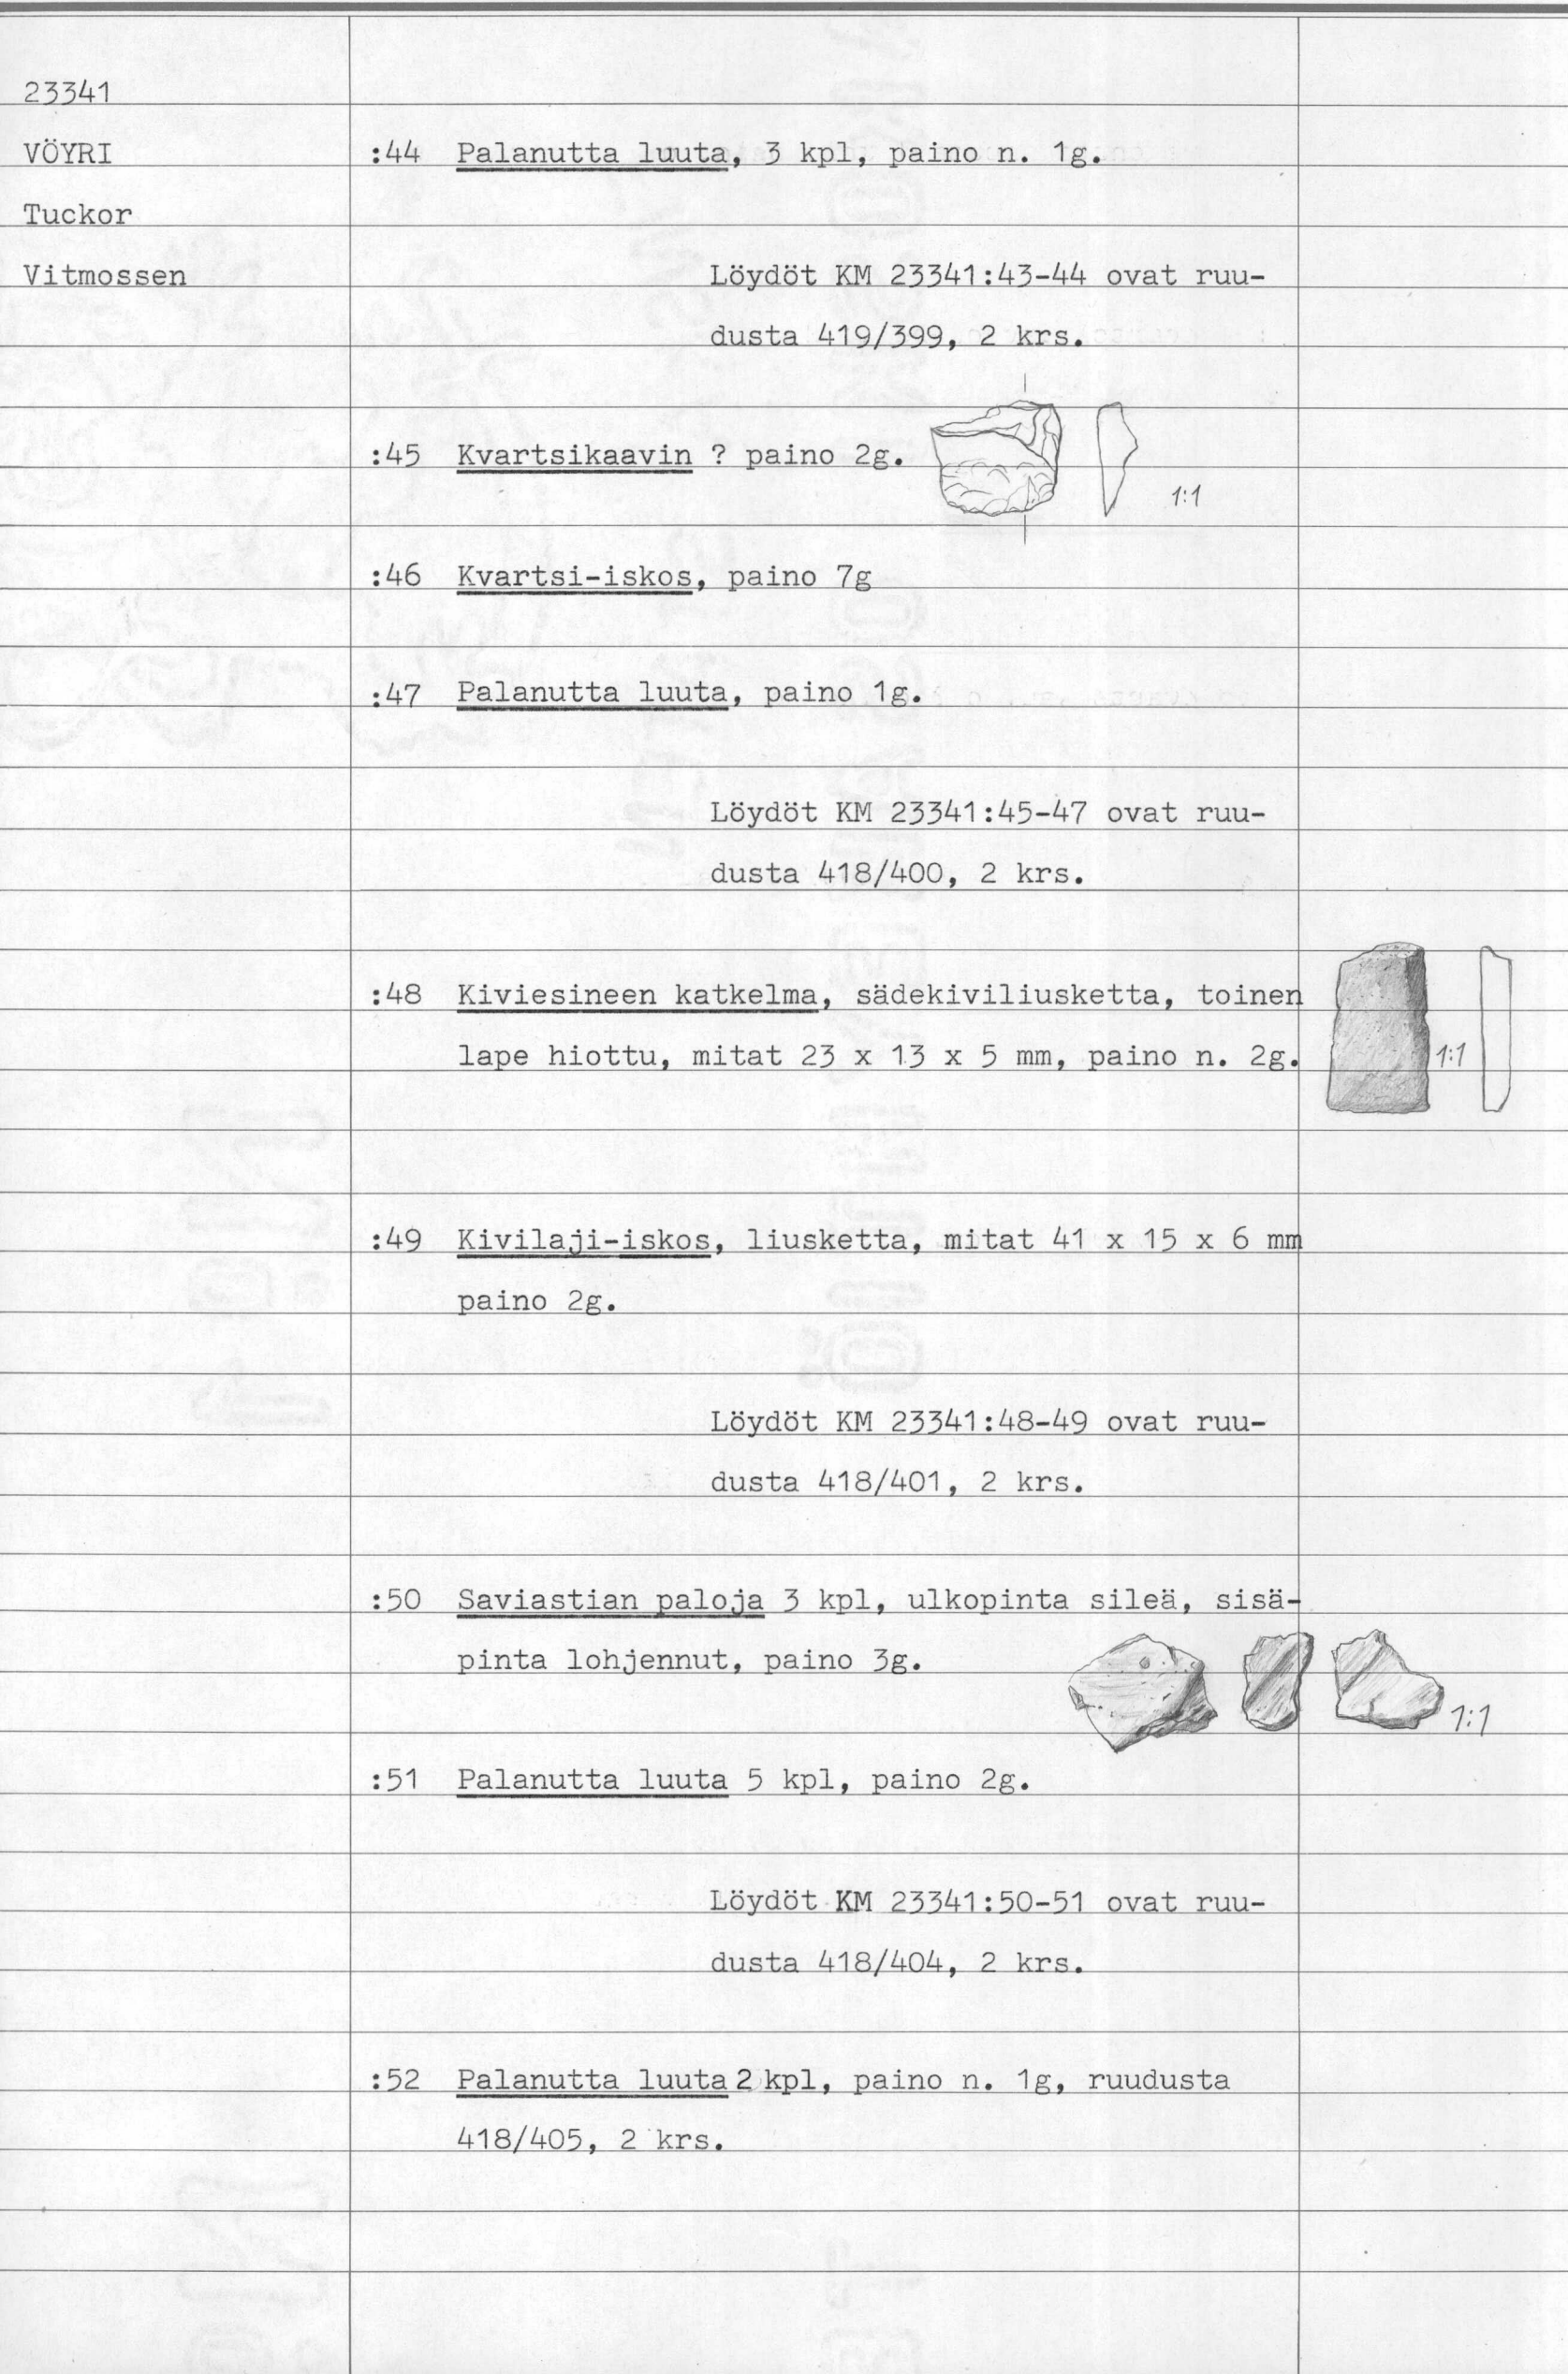 23341
VÖYRI
Tuckor
Vitmossen
:44 Palanutta luuta, 3 kpl, paino n. 1g.
Löydöt KM 23341:43-44 ovat ruu-
dusta 419/399, 2 krs.
:45 Kvartsikaavin ? paino 2g.
1:1
:46 Kvartsi-iskos, paino 7g
:47 Palanutta luuta, paino 1g.
Löydöt KM 23341:45-47 ovat ruu-
dusta 418/400, 2 krs.
:48 Kiviesineen katkelma, sädekiviliusketta, toinen
lape hiottu, mitat 23 x 13 x 5 mm, paino n. 2g.
1:1
:49 Kivilaji-iskos, liusketta, mitat 41 x 15 x 6 mm
paino 2g.
Löydöt KM 23341:48-49 ovat ruu-
dusta 418/401, 2 krs.
:50 Saviastian paloja 3 kpl, ulkopinta sileä, sisä-
pinta lohjennut, paino 3g.
1:1
:51 Palanutta luuta 5 kpl, paino 2g.
Löydöt KM 23341:50-51 ovat ruu-
dusta 418/404, 2 krs.
:52 Palanutta luuta 2 kpl, paino n. 1g, ruudusta
418/405, 2 krs.